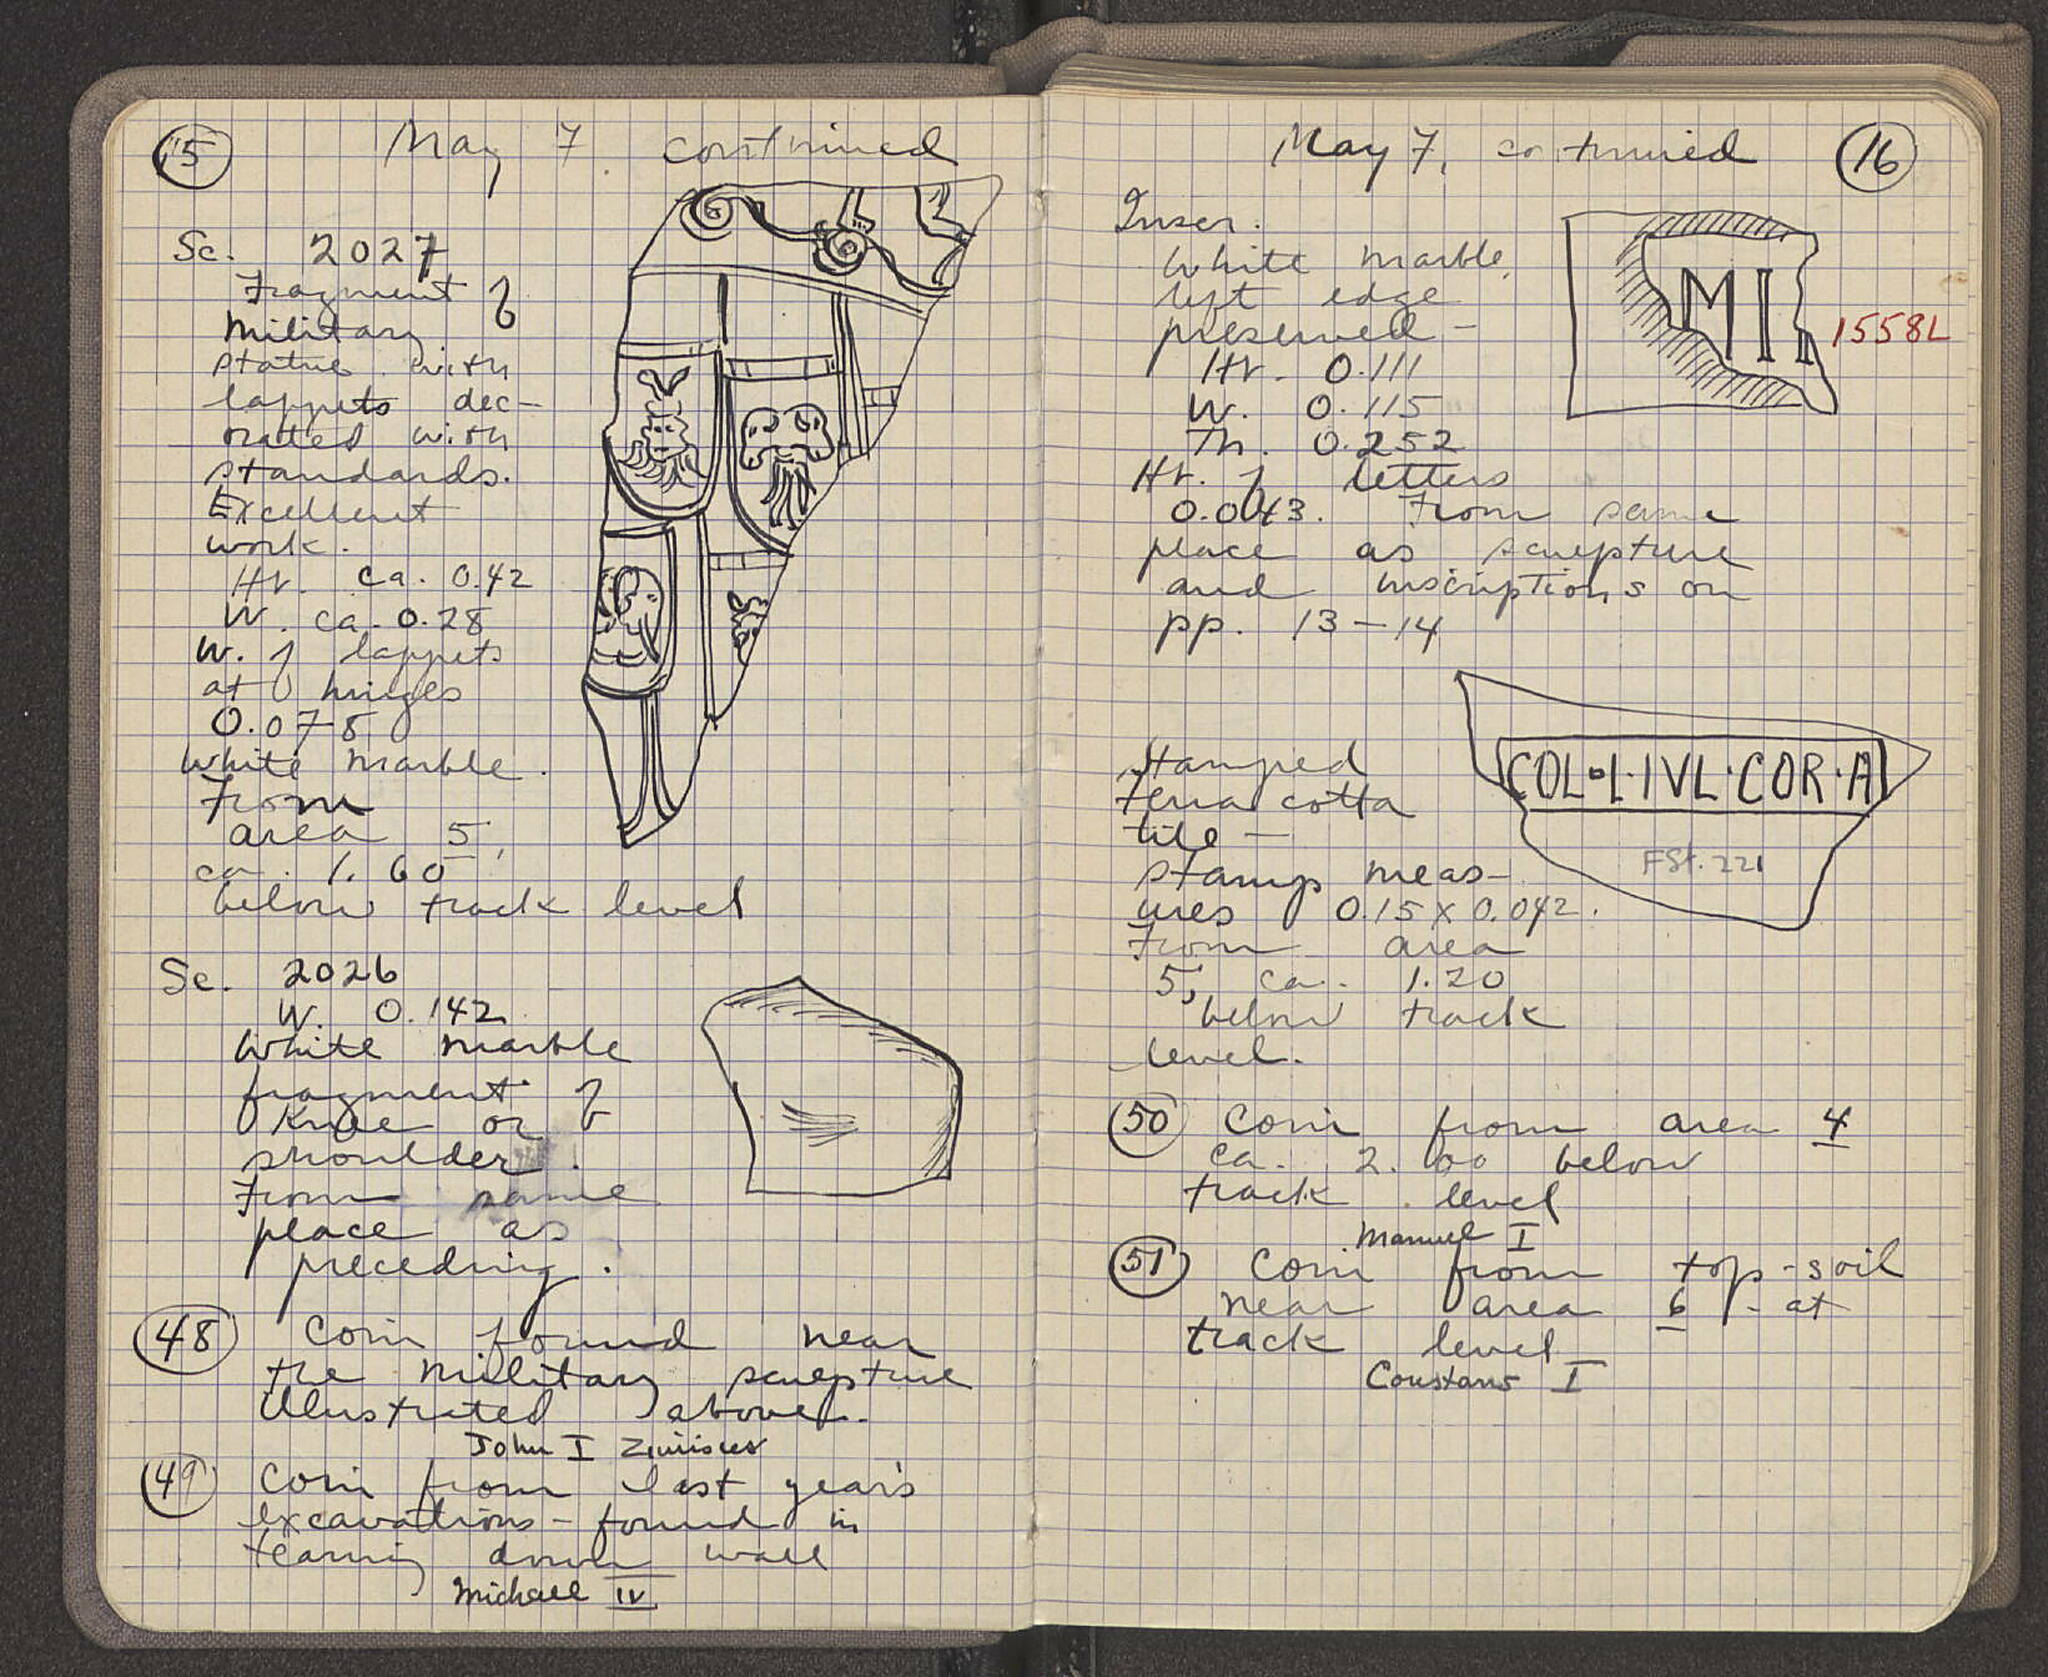 15 May 7 continued
Sc. 2027
Fragment of
military
statue with
lappets dec-
orated with
standards.
Excellent
work.
Ht. ca. 0.42
W. ca. 0.28
W. of lappets
at hinges
0.078
White marble.
From
area 5,
ca. 1.60
below track level
Sc. 2026
W. 0.142
White marble
fragment of
knee or
shoulder.
From same
place as
preceding.
48 Coin found near
the military sculpture
illustrated above.
John I Zimisces
49 Coin from last year's
excavations - found in
tearing down wall
Michael IV
May 7, continued 16
Inscr.
White marble,
left edge
preserved -
Ht. 0.111
W. 0.115
Th. 0.252
Ht. of letters
0.043. From same
place as sculpture
and inscriptions on
pp. 13-14
MI
1558L
Stamped
terra cotta
tile -
stamp meas-
ures 0.15 x 0.042.
From area
5, ca. 1.20
below track
level.
COL·L·IVL·COR·A
FSt. 221
50 Coin from area 4
ca. 2.00 below
track level
Manuel I
51 Coin from top-soil
near area 6 - at
track level
Constans I